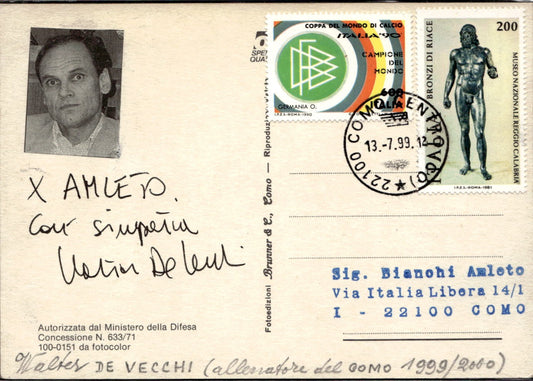 COPPA DEL MONDO DI CALCIO
ITALIA '90
CAMPIONE
DEL
MONDO
600
ITALIA
GERMANIA O.
I.P.Z.S.-ROMA-1990
200
BRONZI DI RIACE
MUSEO NAZIONALE REGGIO CALABRIA
I.P.Z.S.-ROMA-1981
22100 COMO CENTRO
13.-7.99.12
X AMLETO.
Con simpatia
Sig. Bianchi Amleto
Via Italia Libera 14/1
I - 22100 COMO
Fotoedizioni Brunner & C., Como - Riproduzione
Autorizzata dal Ministero della Difesa
Concessione N. 633/71
100-0151 da fotocolor
Walter DE VECCHI (allenatore del COMO 1999/2000)